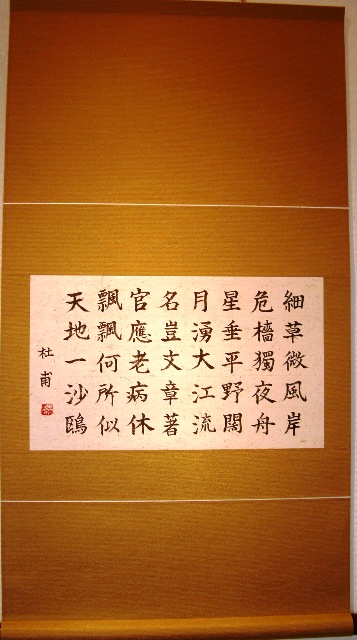 細草微風岸
危檣獨夜舟
星垂平野闊
月湧大江流
名豈文章著
官應老病休
飄飄何所似
天地一沙鷗
杜甫